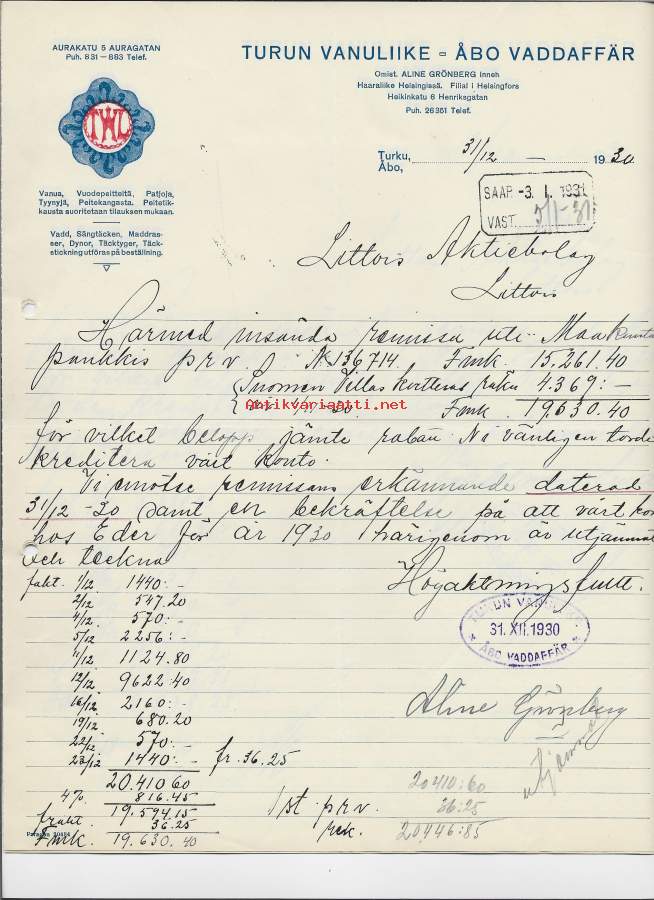 AURAKATU 5 AURAGATAN
Puh. 831—883 Telef.
TURUN VANULIIKE - ÅBO VADDAFFÄR
Omist. ALINE GRÖNBERG Inneh
Haaraliike Helsingissä. Filial i Helsingfors
Heikinkatu 6 Henriksgatan
Puh. 26361 Telef.
TWL
Turku,
Åbo, 31/12 — 1930
SAAP. -3. I. 1931
VAST. 5/1-31
Vanua, Vuodepeitteitä, Patjoja,
Tyynyjä, Peitekangasta. Peitetik-
kausta suoritetaan tilauksen mukaan.
Vadd, Sängtäcken, Maddras-
ser, Dynor, Täcktyger, Täck-
stickning utföras på beställning.
Littois Aktiebolag
Littois
Härmed insända remissa uti Maakunta
pankkis prv. No 136714. Fmk. 15.261.40
Suomen Villas kvitteras räkn 4.369:-
Antikvariaatti.net
Fmk. 19.630.40
för vilket belopp jämte rabatt Ni vänligen torde
kreditera vårt konto.
Vi emotse remissans erkännande daterad
31/12 -30 samt en bekräftelse på att vårt kon
hos Eder för år 1930 härigenom är utjämnat
och teckna
Högaktningsfullt.
fakt. 1/12 1440:-
2/12 547.20
4/12 570:-
5/12 2256:-
11/12 1124.80
12/12 9622:40
16/12 2160:-
19/12 680.20
22/12 570:-
23/12 1440:- fr. 36.25
20.410 60
4% 816.45
19.594.15
frakt. 36.25
Fmk. 19.630.40
TURUN VANULIIKE
31. XII. 1930
ÅBO VADDAFFÄR
Aline Grönberg
utjämnad
1 st. prv.
rek.
20410:60
36:25
20446:85